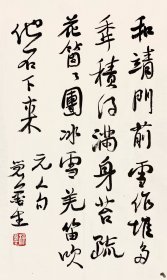 和靖門前雪作堆多
年積得滿身苔疏
花箇〻團冰雪羌笛吹
他不下來
元人句